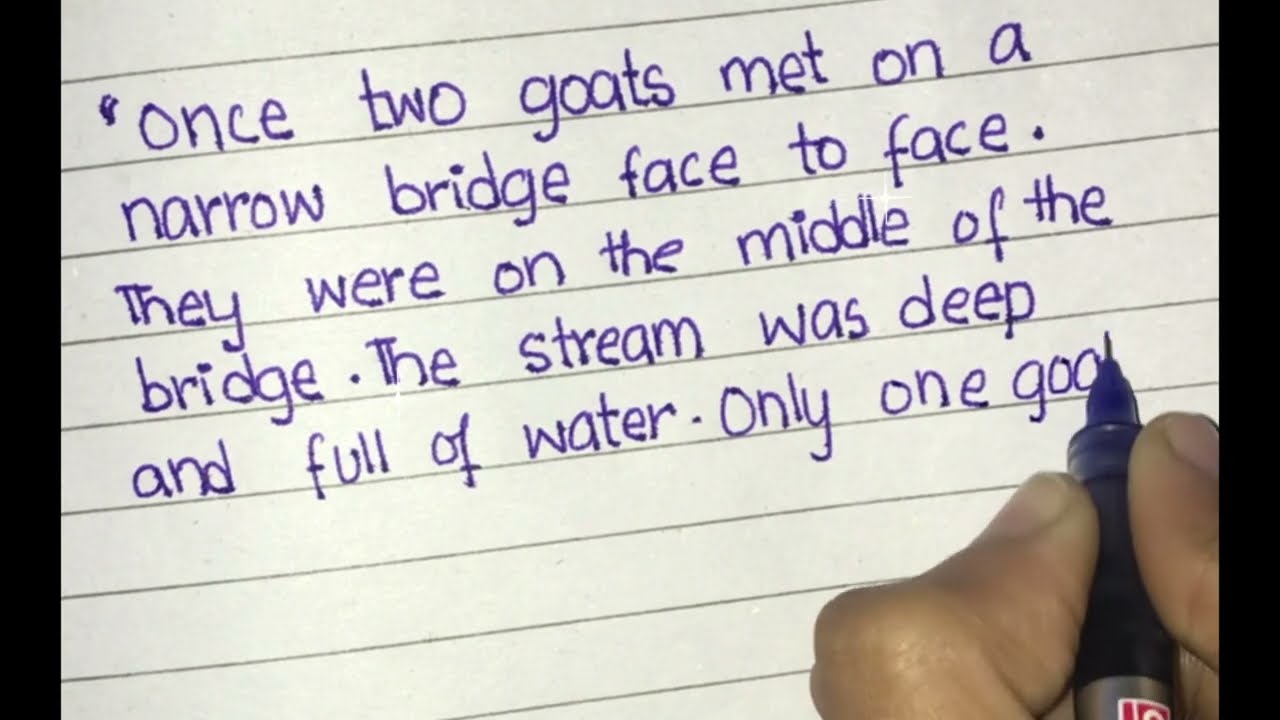 "Once two goats met on a
narrow bridge face to face.
They were on the middle of the
bridge. The stream was deep
and full of water. Only one goa